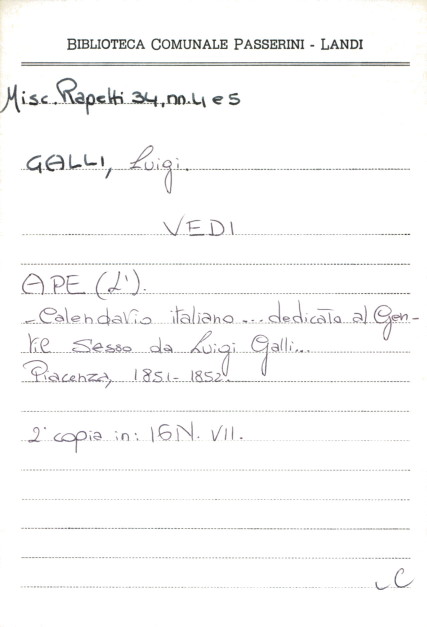 BIBLIOTECA COMUNALE PASSERINI - LANDI
Misc. Rapetti 34, nn. 4 e 5
GALLI, Luigi.
VEDI
APE (L').
- Calendario italiano ... dedicato al Gen-
til Sesso da Luigi Galli...
Piacenza, 1851-1852.
2ª copia in: 16N. VII.
C